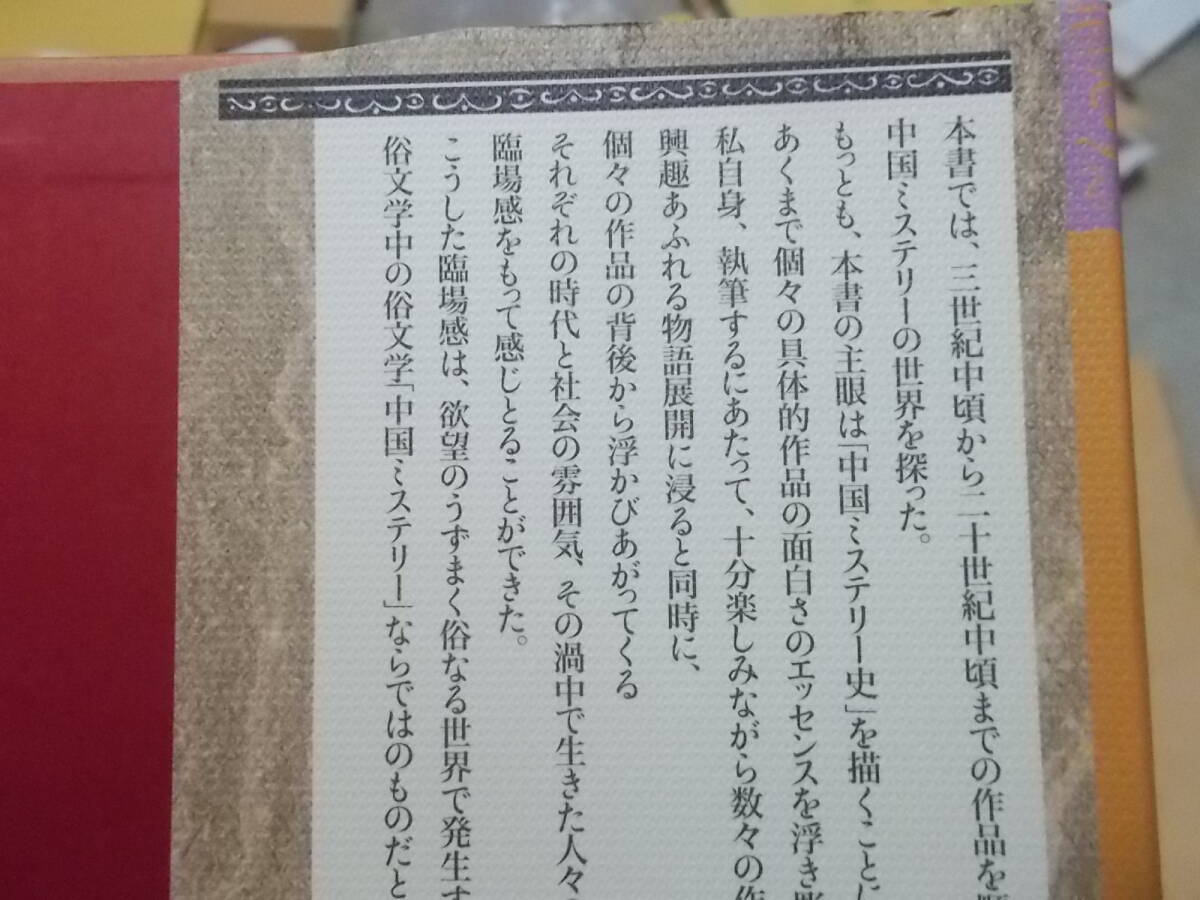 本書では、三世紀中頃から二十世紀中頃までの作品を
中国ミステリーの世界を探った。
もっとも、本書の主眼は「中国ミステリー史」を描くことに
あくまで個々の具体的作品の面白さのエッセンスを浮き
私自身、執筆するにあたって、十分楽しみながら数々の作
興趣あふれる物語展開に浸ると同時に、
個々の作品の背後から浮かびあがってくる
それぞれの時代と社会の雰囲気、その渦中で生きた人々の
臨場感をもって感じとることができた。
こうした臨場感は、欲望のうずまく俗なる世界で発生す
俗文学中の俗文学「中国ミステリー」ならではのものだと